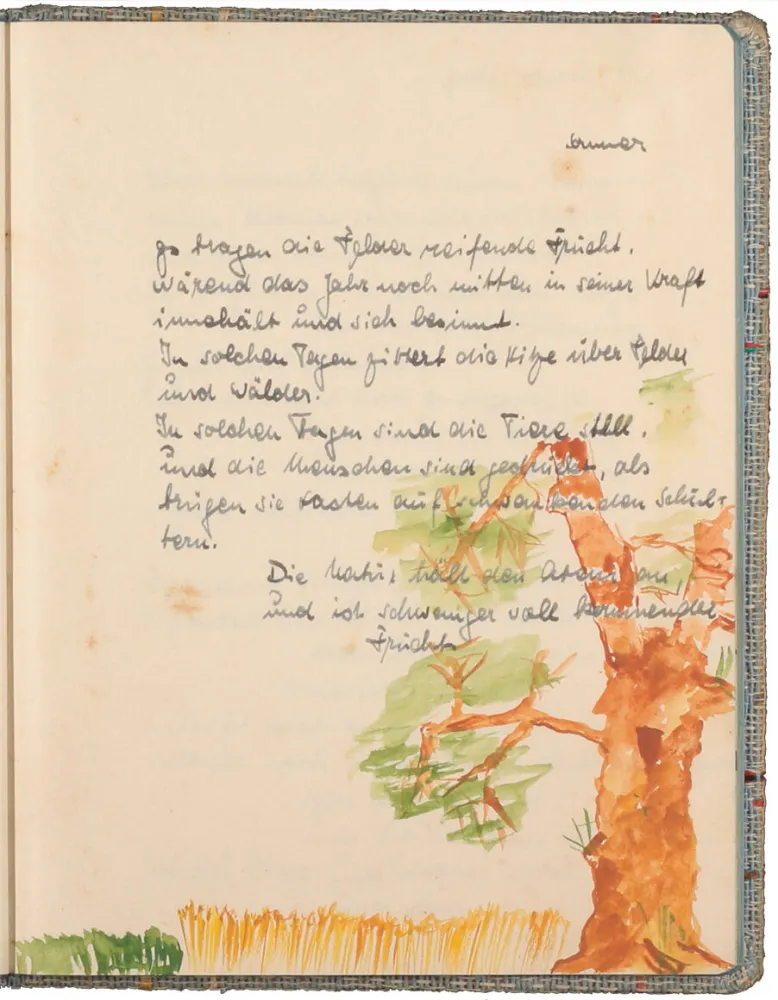 Sommer
So tragen die Felder reifende Frücht.
wärend das Jahr noch mitten in seiner Kraft
innehält und sich besinnt.
In solchen Tagen zittert die Hitze über Felder
und Wälder.
In solchen Tagen sind die Tiere still,
und die Menschen sind gedrückt, als
trügen sie Lasten auf schwankenden Schul-
tern.
Die Natur hält den Atem an,
und ist schwanger voll kommender
Frücht